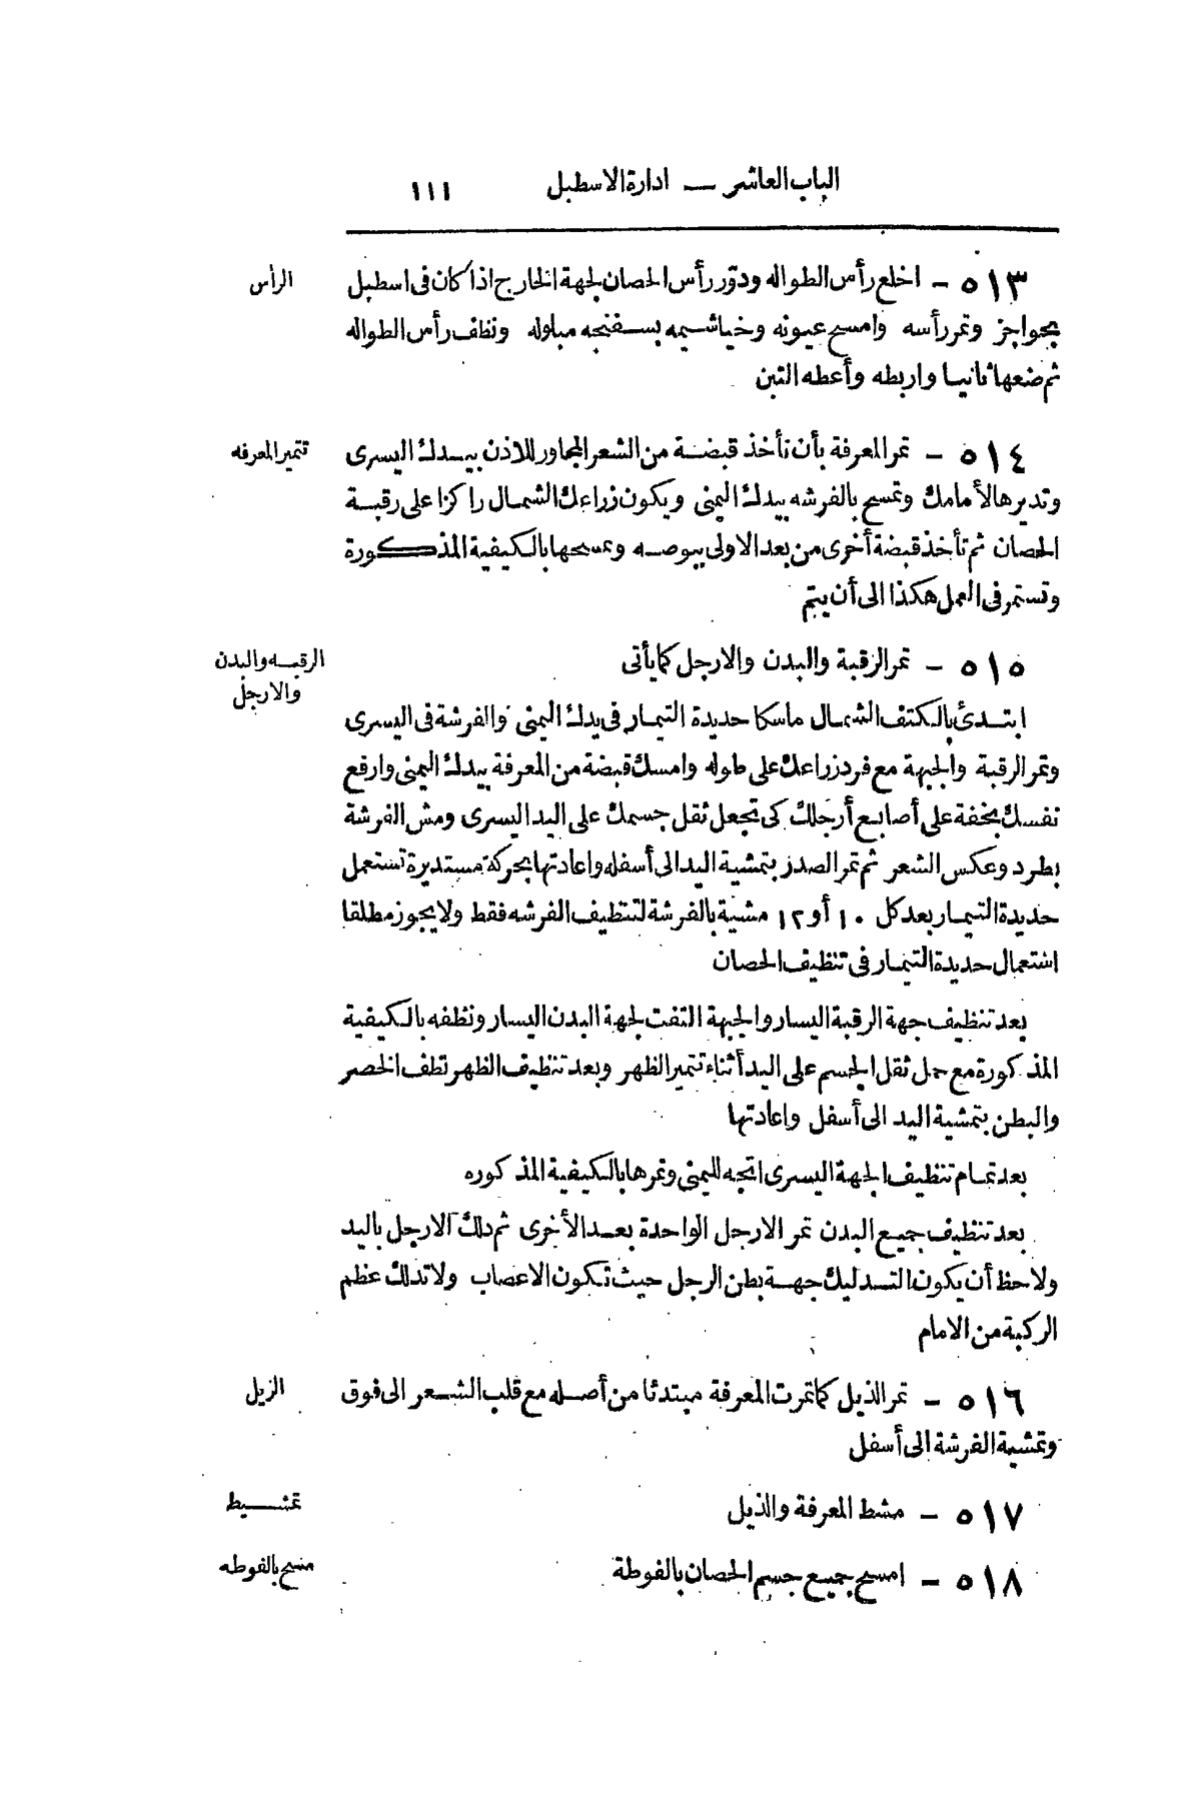 الباب العاشر — ادارة الاسطبل ١١١
الرأس
٥١٣ - اخلع رأس الطواله ودوّر رأس الحصان لجهة الخارج اذا كان فى اسطبل
بحواجز وتمر رأسه وامسح عيونه وخياشيمه بسفنجه مبلوله ونظف رأس الطواله
ثم ضعها ثانيا واربطه وأعطه التبن
تتمير المعرفه
٥١٤ - تمر المعرفة بأن تأخذ قبضة من الشعر المجاور للاذن بيدك اليسرى
وتديرها لأمامك وتمسح بالفرشه بيدك اليمنى ويكون زراعك الشمال راكزا على رقبة
الحصان ثم تأخذ قبضة أخرى من بعد الاولى ببوصه وتمسحها بالكيفية المذكورة
وتستمر فى العمل هكذا الى أن يتم
الرقبه والبدن
والارجل
٥١٥ - تمر الرقبة والبدن والارجل كما يأتى
ابتدئ بالكتف الشمال ماسكا حديدة التيمار فى يدك اليمنى والفرشة فى اليسرى
وتمر الرقبة والجبهة مع فرد زراعك على طوله وامسك قبضة من المعرفة بيدك اليمنى وارفع
نفسك بخفة على أصابع أرجلك كى تجعل ثقل جسمك على اليد اليسرى ومش الفرشة
بطرد وعكس الشعر ثم تمر الصدر بتمشية اليد الى أسفله واعادتها بحركة مستديرة تستعمل
حديدة التيمار بعد كل ١٠ أو ١٢ مشية بالفرشة لتنظيف الفرشه فقط ولا يجوز مطلقا
اشتعمال حديدة التيمار فى تنظيف الحصان
بعد تنظيف جهة الرقبة اليسار والجبهة التفت لجهة البدن اليسار ونظفه بالكيفية
المذكورة مع حمل ثقل الجسم على اليد أثناء تتمير الظهر وبعد تنظيف الظهر تظف الخصر
والبطن بتمشية اليد الى أسفل واعادتها
بعد تمام تنظيف الجهة اليسرى اتجه لليمنى وتمرها بالكيفية المذكوره
بعد تنظيف جميع البدن تمر الارجل الواحدة بعد الأخرى ثم دلك الارجل باليد
ولاحظ أن يكون التدليك جهة بطن الرجل حيث تكون الاعصاب ولا تدلك عظم
الركبة من الامام
الزيل
٥١٦ - تمر الذيل كما تمرت المعرفة مبتدئا من أصله مع قلب الشعر الى فوق
وتمشية الفرشة الى أسفل
تمشيط
٥١٧ - مشط المعرفة والذيل
مسح بالفوطه
٥١٨ - امسح جميع جسم الحصان بالفوطة